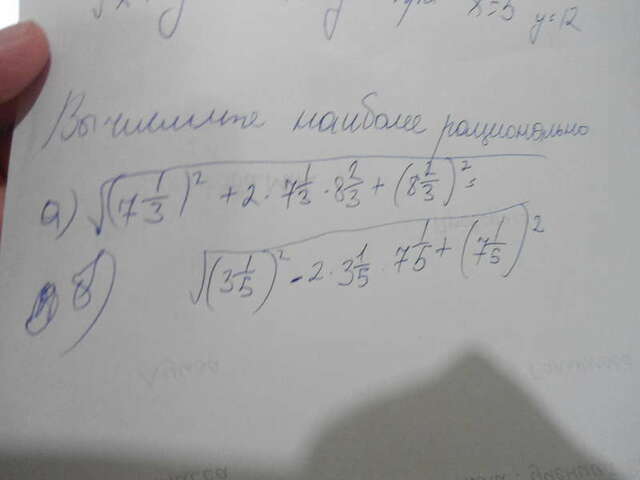 x=5 y=12
Вычислите наиболе рационально
а) √(7 1/3)² + 2 · 7 1/3 · 8 2/3 + (8 2/3)² =
б) √(3 1/5)² - 2 · 3 1/5 · 7 1/5 + (7 1/5)²